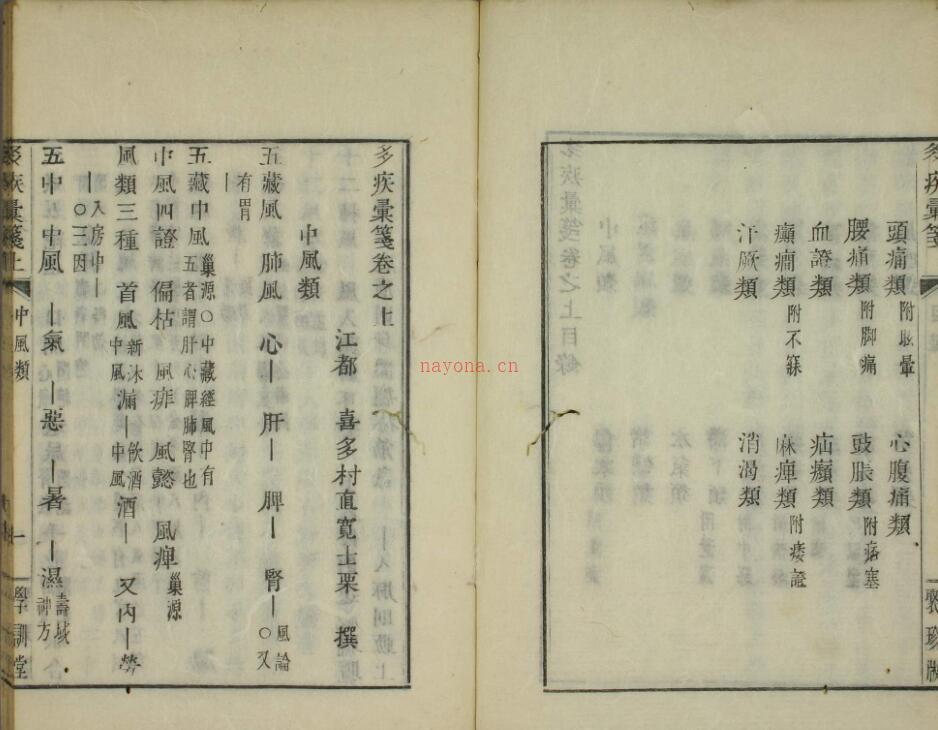 頭痛類 附眩暈 心腹痛類
腰痛類 附脚痛 豉脹類 附痞塞
血證類 疝㿗類
癲癇類 附不寐 麻痺類 附痿證
汗厥類 消渴類
多疾彙箋卷之上
江都 喜多村直寬士栗 撰
中風類
五藏風 肺風 心｜ 肝｜ 脾｜ 腎｜ 風論○又
有胃｜
五藏中風 巢源○中藏經風中有
五者謂肝心脾肺腎也
中風四證 偏枯 風痱 風懿 風痺 巢源
風類三種 首風 新沐中風 漏｜ 飲酒中風 酒｜ 又內｜勞
｜入房中｜
｜○三因
五中 中風 ｜氣 ｜惡 ｜暑 ｜濕 壽域神方
中風類
一
學訓堂
聚珍版
nayona.cn